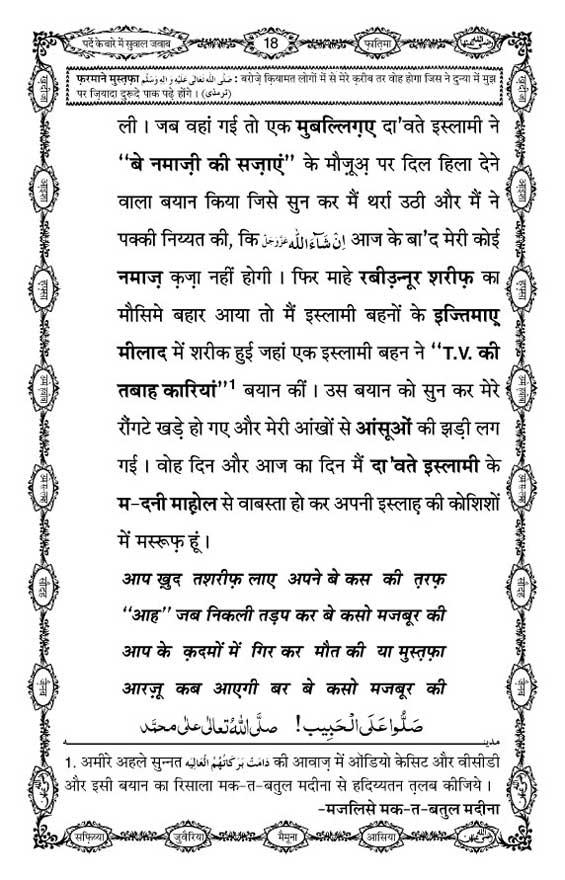 पर्दे के बारे में सुवाल जवाब
18
फ़ातिमा
फ़रमाने मुस्तफ़ा صَلَّى اللّٰهُ تَعَالٰى عَلَيْهِ وَاٰلِهٖ وَسَلَّم : बरोज़े क़ियामत लोगों में से मेरे क़रीब तर वोह होगा जिस ने दुन्या में मुझ
पर ज़ियादा दुरूदे पाक पढ़े होंगे । (ترمذی)
ली । जब वहां गई तो एक मुबल्लिग़ए दा'वते इस्लामी ने
“बे नमाज़ी की सज़ाएं” के मौज़ूअ़ पर दिल हिला देने
वाला बयान किया जिसे सुन कर मैं थर्रा उठी और मैं ने
पक्की निय्यत की, कि اِنْ شَآءَ اللّٰه عَزَّوَجَلَّ आज के बा'द मेरी कोई
नमाज़ क़ज़ा नहीं होगी । फिर माहे रबीउ़न्नूर शरीफ़ का
मौसिमे बहार आया तो मैं इस्लामी बहनों के इज्तिमाए़
मीलाद में शरीक हुई जहां एक इस्लामी बहन ने “T.V. की
तबाह कारियां”1 बयान कीं । उस बयान को सुन कर मेरे
रौंगटे खड़े हो गए और मेरी आंखों से आंसूओं की झड़ी लग
गई । वोह दिन और आज का दिन मैं दा'वते इस्लामी के
म-दनी माह़ोल से वाबस्ता हो कर अपनी इस्लाह़ की कोशिशों
में मस्रूफ़ हूं ।
आप ख़ुद तशरीफ़ लाए अपने बे कस की त़रफ़
“आह” जब निकली तड़प कर बे कसो मजबूर की
आप के क़दमों में गिर कर मौत की या मुस्त़फ़ा
आरज़ू कब आएगी बर बे कसो मजबूर की
صَلُّوا عَلَى الْحَبِيب! صَلَّى اللّٰهُ تَعَالٰى عَلٰى مُحَمَّد
مدینہ
1. अमीरे अहले सुन्नत دَامَتْ بَرَكَاتُهُمُ الْعَالِيَه की आवाज़ में ऑडियो केसिट और वीसीडी
और इसी बयान का रिसाला मक-त-बतुल मदीना से हदिय्यतन त़लब कीजिये ।
-मजलिसे मक-त-बतुल मदीना
सफ़िय्या
जुवैरिया
मैमूना
आसिया